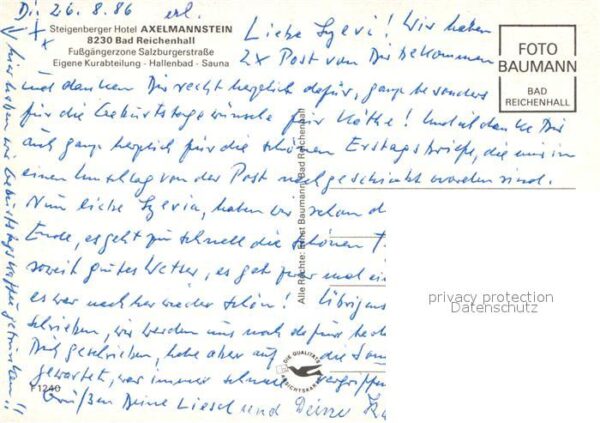 Di. 26.8.86 erl.
Steigenberger Hotel AXELMANNSTEIN
8230 Bad Reichenhall
Fußgängerzone Salzburgerstraße
Eigene Kurabteilung - Hallenbad - Sauna
FOTO
BAUMANN
BAD
REICHENHALL
Liebe Sylvia! Wir haben
2x Post von Dir bekommen
und danken Dir recht herzlich dafür, ganz besonders
für die Geburtstagswünsche für Käthe! Und ich danke Dir
auch ganz herzlich für die schönen Erstagsbriefe, die mir in
einen Umschlag von der Post nachgeschickt worden sind.
Nun liebe Sylvia, haben wir schon d
Ende, es geht zu schnell die schönen T
soweit gutes Wetter, es gab zwar mal ei
es war nachher wieder schön! Übrigens
schrieben, wir werden uns noch dafür
Dich geschrieben, habe aber auf die
gewartet, war immer schnell vergriffen
Grüßen Deine Liesel und Deine Kä
hier haben wir Geburtstagskaffee getrunken!!
Alle Rechte: Ernst Baumann, Bad Reichenhall
DIE QUALITÄTS
ANSICHTSKARTE
F1240
privacy protection
Datenschutz